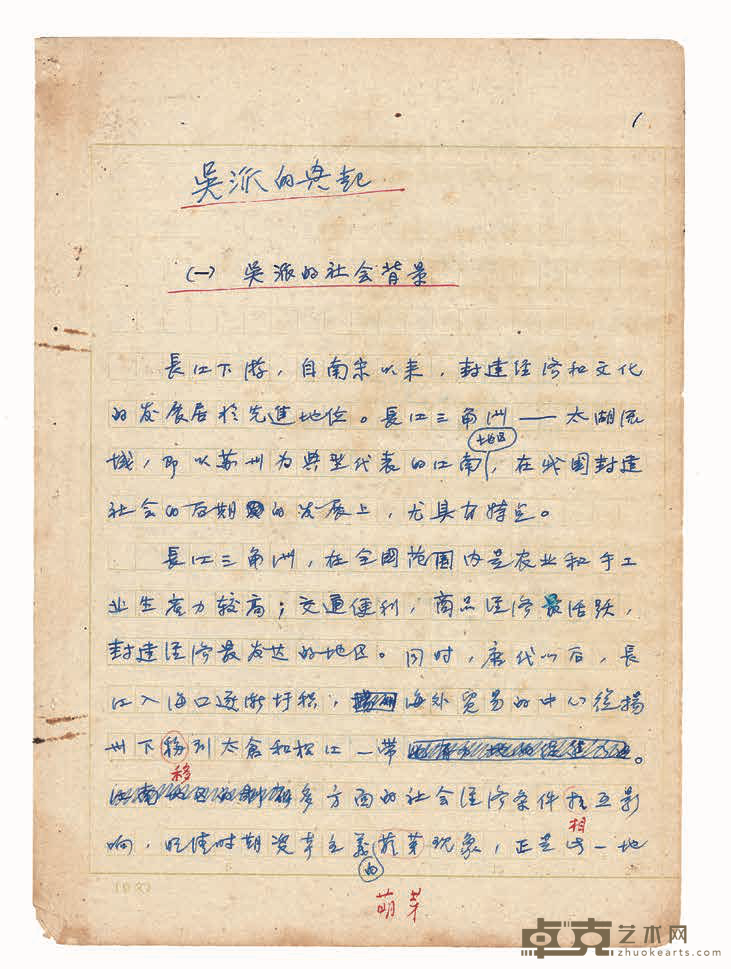 1
吳派的興起
(一) 吳派的社会背景
長江下游，自南宋以来，封建經济和文化
的发展居於先進地位。長江三角洲——太湖流
地区
域，即以苏州为典型代表的江南，在我国封建
社会的后期的发展上，尤具有特色。
長江三角洲，在全國范围内是农业和手工
业生产力较高；交通便利，商品经济最活跃，
封建经济最发达的地区。同时，唐代以后，長
江入海口逐渐圩积，海外贸易的中心從揚
州下移到太倉和松江一带。
移
多方面的社会经济条件相互影
相
响，时期资本主义萌芽现象，正是这一地
的
萌芽
卓克艺术网
zhuokearts.com